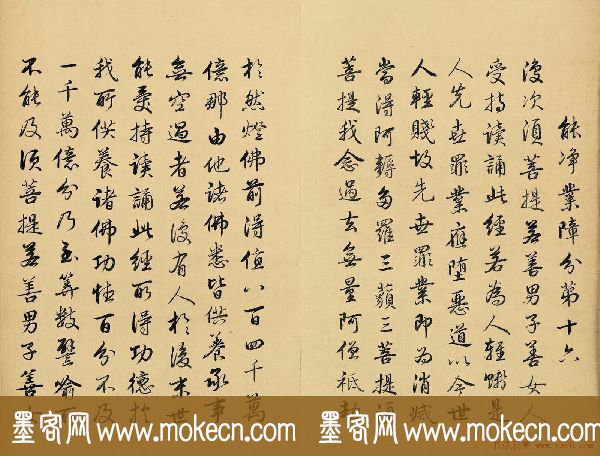 能净業障分第十六
復次須菩提若善男子善女人
受持讀誦此經若為人輕賤是
人先世罪業應墮惡道以今世
人輕賤故先世罪業即為消滅
當得阿耨多羅三藐三菩提須
菩提我念過去無量阿僧祇劫
於然燈佛前得值八百四千萬
億那由他諸佛悉皆供養承事
無空過者若復有人於後末世
能受持讀誦此經所得功德於
我所供養諸佛功德百分不及
一千萬億分乃至算數譬喻
不能及須菩提若善男子善
墨客网 www.mokecn.com 墨客网 www.mokecn.com